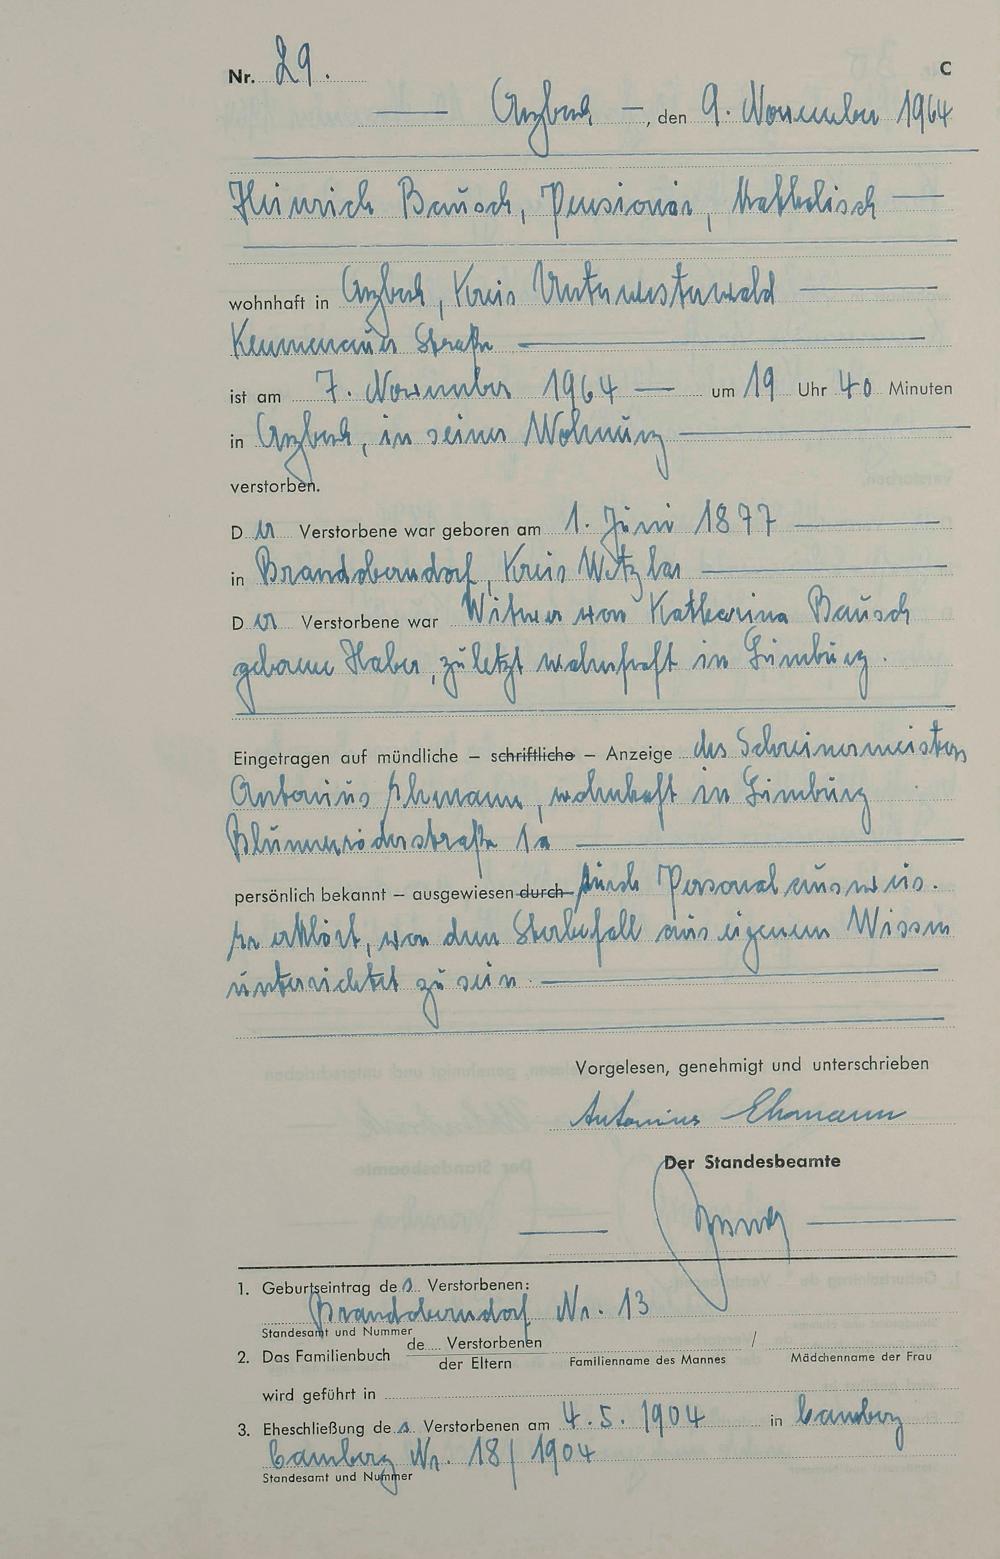 Nr. 29. C
Arzbach, den 9. November 1964
Heinrich Bausch, Pensionär, katholisch
wohnhaft in Arzbach, Kreis Unterwesterwald
Kemmenauer Straße
ist am 7. November 1964 um 19 Uhr 40 Minuten
in Arzbach, in seiner Wohnung
verstorben.
Der Verstorbene war geboren am 1. Juni 1877
in Brandoberndorf, Kreis Wetzlar
Der Verstorbene war Witwer von Katharina Bausch
geborene Haber, zuletzt wohnhaft in Limburg.
Eingetragen auf mündliche – schriftliche – Anzeige des Schreinermeisters
Antonius Ehmann, wohnhaft in Limburg
Blumenröderstraße 1a
persönlich bekannt – ausgewiesen durch durch Personalausweis.
Er erklärt, von dem Sterbefall aus eigenem Wissen
unterrichtet zu sein.
Vorgelesen, genehmigt und unterschrieben
Antonius Ehmann
Der Standesbeamte
1. Geburtseintrag des Verstorbenen:
Brandoberndorf Nr. 13
Standesamt und Nummer
2. Das Familienbuch de Verstorbenen / der Eltern Familienname des Mannes / Mädchenname der Frau
wird geführt in
3. Eheschließung des Verstorbenen am 4.5.1904 in Camberg
Camberg Nr. 18/1904
Standesamt und Nummer